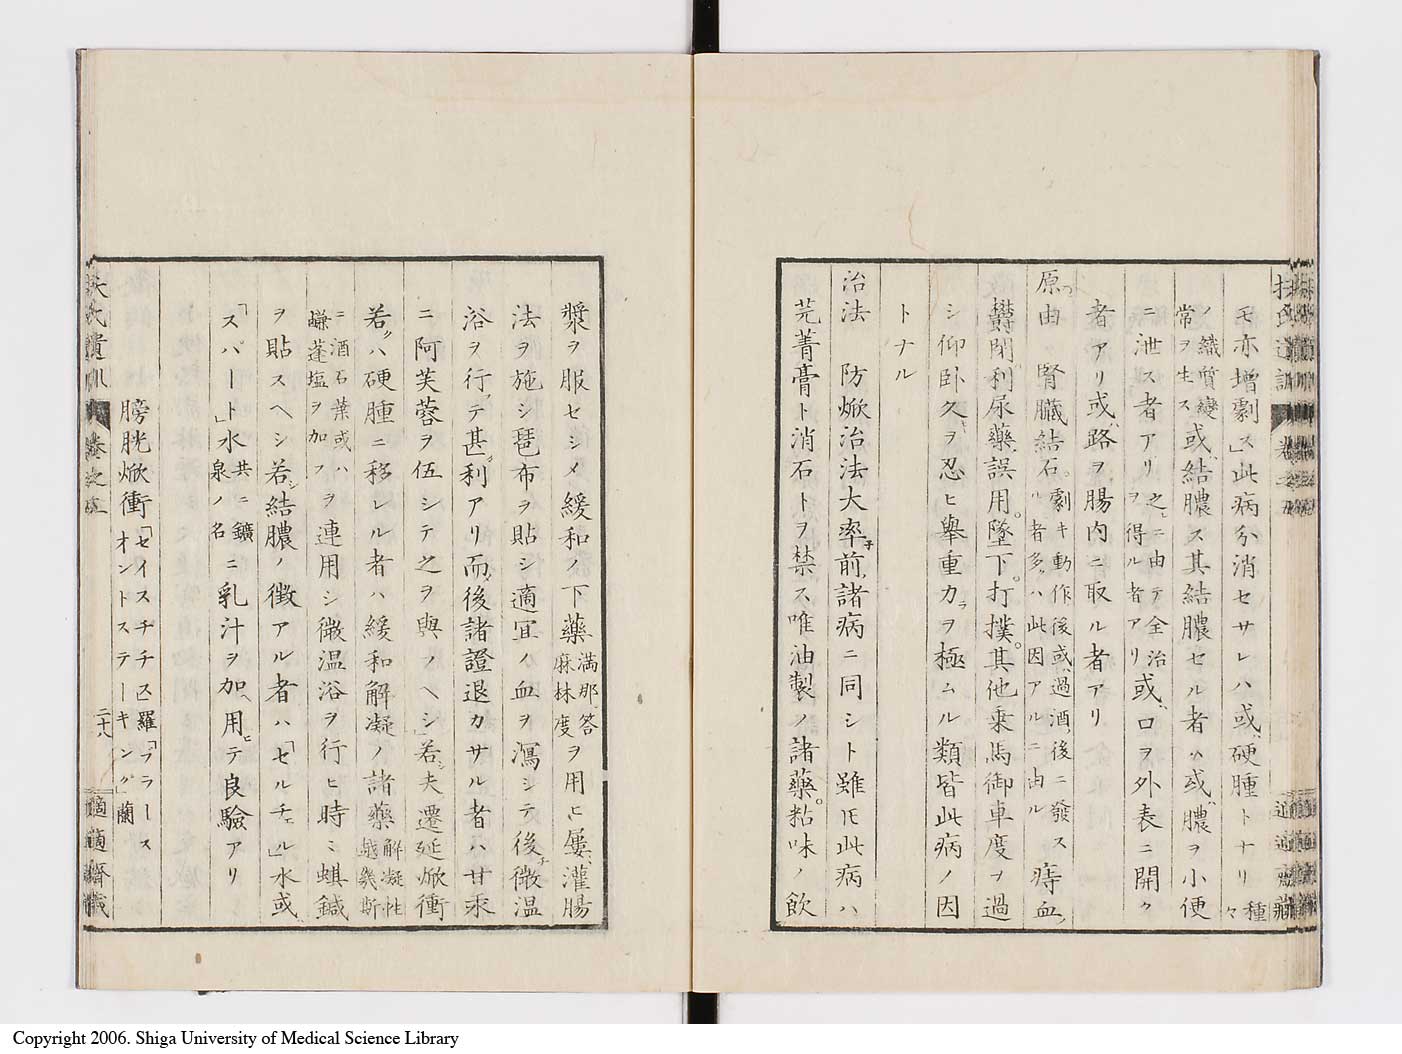 扶氏遺訓 卷之五 適適齋藏
モ亦増劇ス」此病分消セサレハ或硬腫トナリ種々
ノ織質變常ヲ生ス或結膿ス其結膿セル者ハ或膿ヲ小便
ニ泄ス者アリ之ニ由テ全治ヲ得ル者アリ或口ヲ外表ニ開ク
者アリ或路ヲ腸内ニ取ル者アリ
原由 腎臓結石劇キ動作後或過酒後ニ發スル者多ハ此因アルニ由ル痔血
欝閉利尿藥誤用墜下打撲其他乘馬御車度ヲ過
シ仰臥久ヲ忍ヒ擧重力ヲ極ムル類皆此病ノ因
トナル
治法 防焮治法大率前諸病ニ同シト雖モ此病ハ
芫菁膏ト消石トヲ禁ス唯油製ノ諸藥粘味ノ飲
漿ヲ服セシメ緩和ノ下藥満那答麻林度ヲ用ヒ屢灌腸
法ヲ施シ琶布ヲ貼シ適宜ノ血ヲ瀉シテ後微温
浴ヲ行テ甚利アリ而後諸證退カサル者ハ甘汞
ニ阿芙蓉ヲ伍シテ之ヲ與フヘシ」若夫遷延焮衝
若クハ硬腫ニ移レル者ハ緩和解凝ノ諸藥解凝性越幾斯
ニ酒石葉或ハ鹻蓬塩ヲ加フヲ連用シ微温浴ヲ行ヒ時ミ蜞鍼
ヲ貼スヘシ若結膿ノ徴アル者ハ「セルチェル」水或
「スパート」水共ニ鑛泉ノ名ニ乳汁ヲ加ヘ用ヒテ良驗アリ
膀胱焮衝「セイスチチス」羅「ブラースオントステーキング」蘭
扶氏遺訓 卷之五 二十八 適適齋藏
Copyright 2006. Shiga University of Medical Science Library